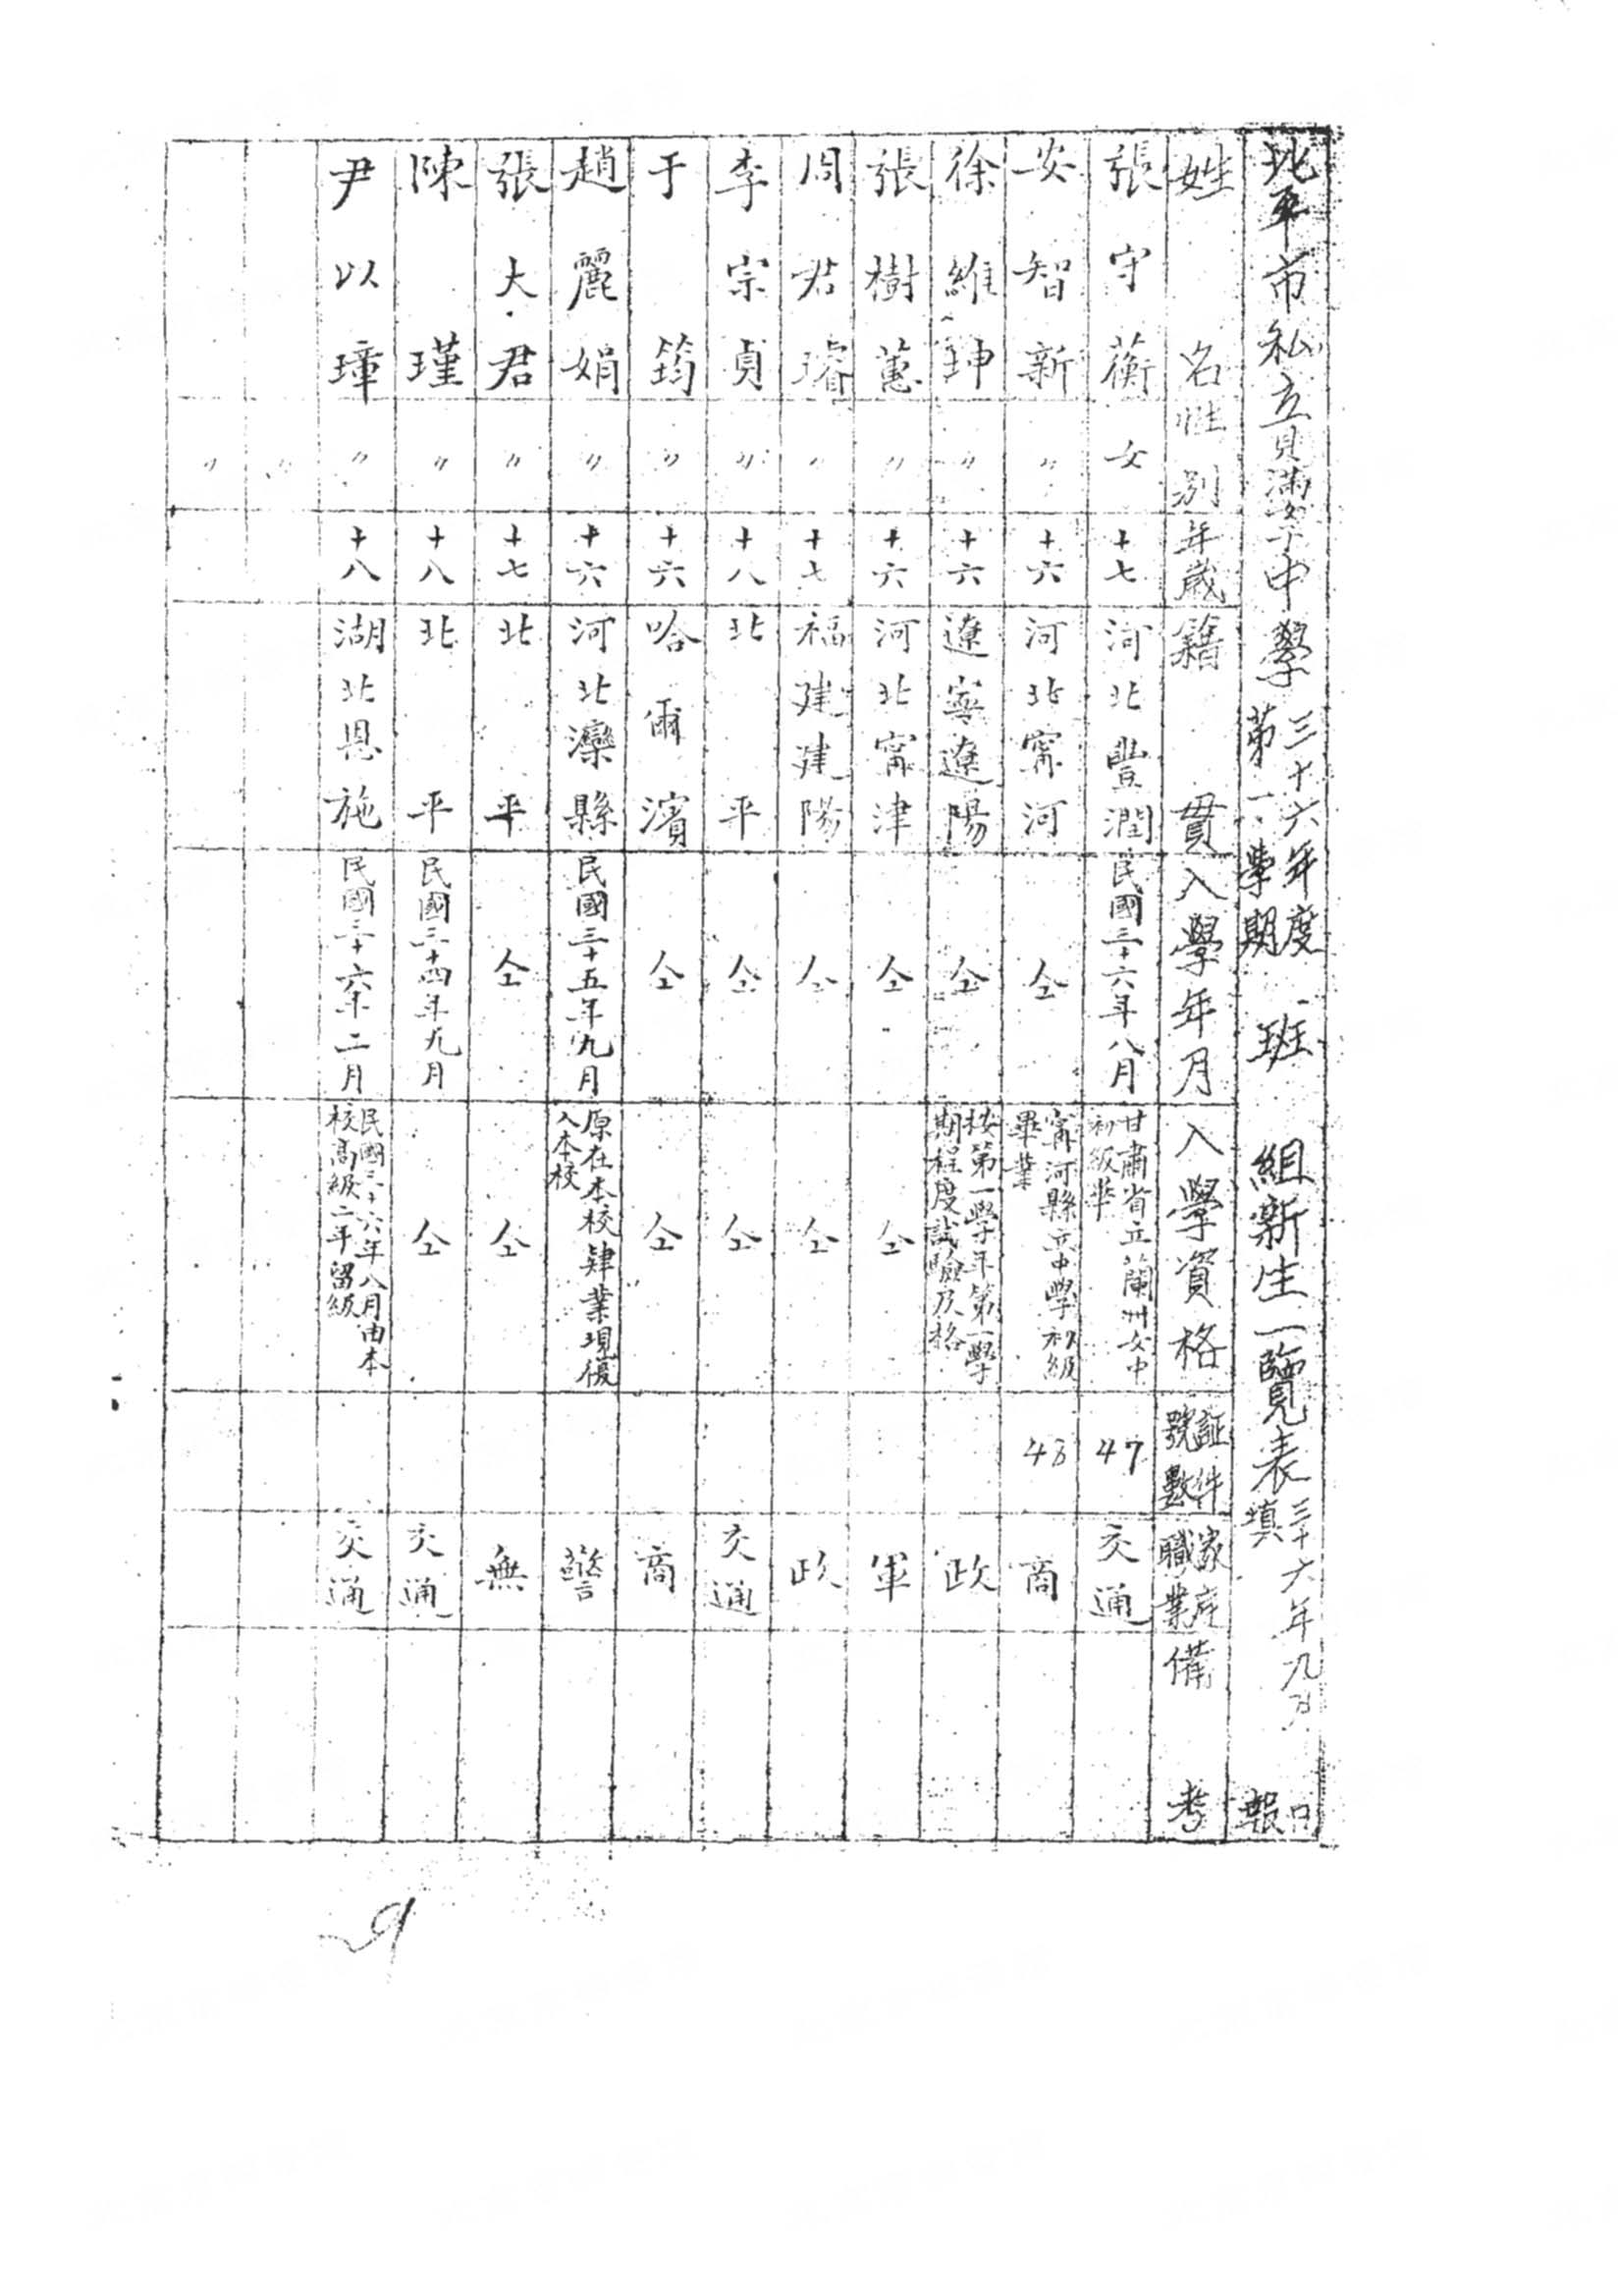 北平市私立貝滿女子中學 三十六年度第一學期 班 組新生一覽表 三十六年九月 日填報
姓名 性別 年歲 籍貫 入學年月 入學資格 証件號數 家庭職業 備考
張守蘅 女 十七 河北豐潤 民國三十六年八月 甘肅省立蘭州女中初級畢 47 交通
安智新 〃 十六 河北甯河 仝 甯河縣立中學初級畢業 48 商
徐維珅 〃 十六 遼寧遼陽 仝 按第一學年第一學期程度試驗及格 政
張樹蕙 〃 十六 河北甯津 仝 仝 軍
周君璿 〃 十七 福建建陽 仝 仝 政
李宗貞 〃 十八 北平 仝 仝 交通
于筠 〃 十六 哈爾濱 仝 仝 商
趙麗娟 〃 十六 河北灤縣 民國三十五年九月 原在本校肄業現復入本校 警
張大君 〃 十七 北平 仝 仝 無
陳瑾 〃 十八 北平 民國三十四年九月 仝 交通
尹以璋 〃 十八 湖北恩施 民國三十六年二月 民國三十六年八月由本校高級二年留級 交通
〃
〃